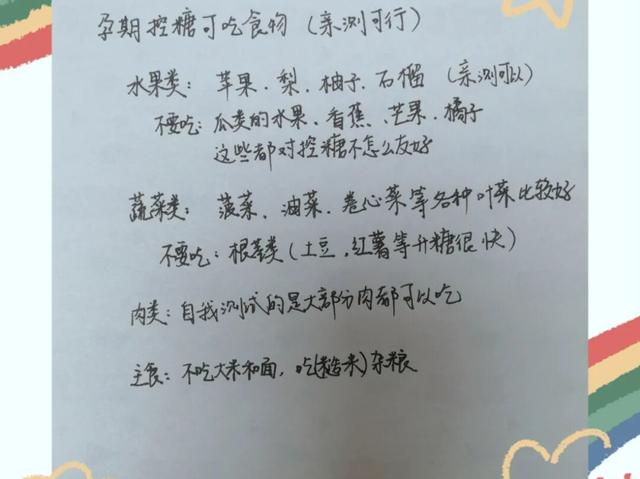 孕期控糖可吃食物（亲测可行）
水果类：苹果、梨、柚子、石榴（亲测可以）
不要吃：瓜类的水果、香蕉、芒果、橘子
这些都对控糖不怎么友好
蔬菜类：菠菜、油菜、卷心菜等各种叶菜比较好
不要吃：根茎类（土豆,红薯等升糖很快）
肉类：自我测试的是大部分肉都可以吃
主食：不吃大米和面，吃(糙米)杂粮